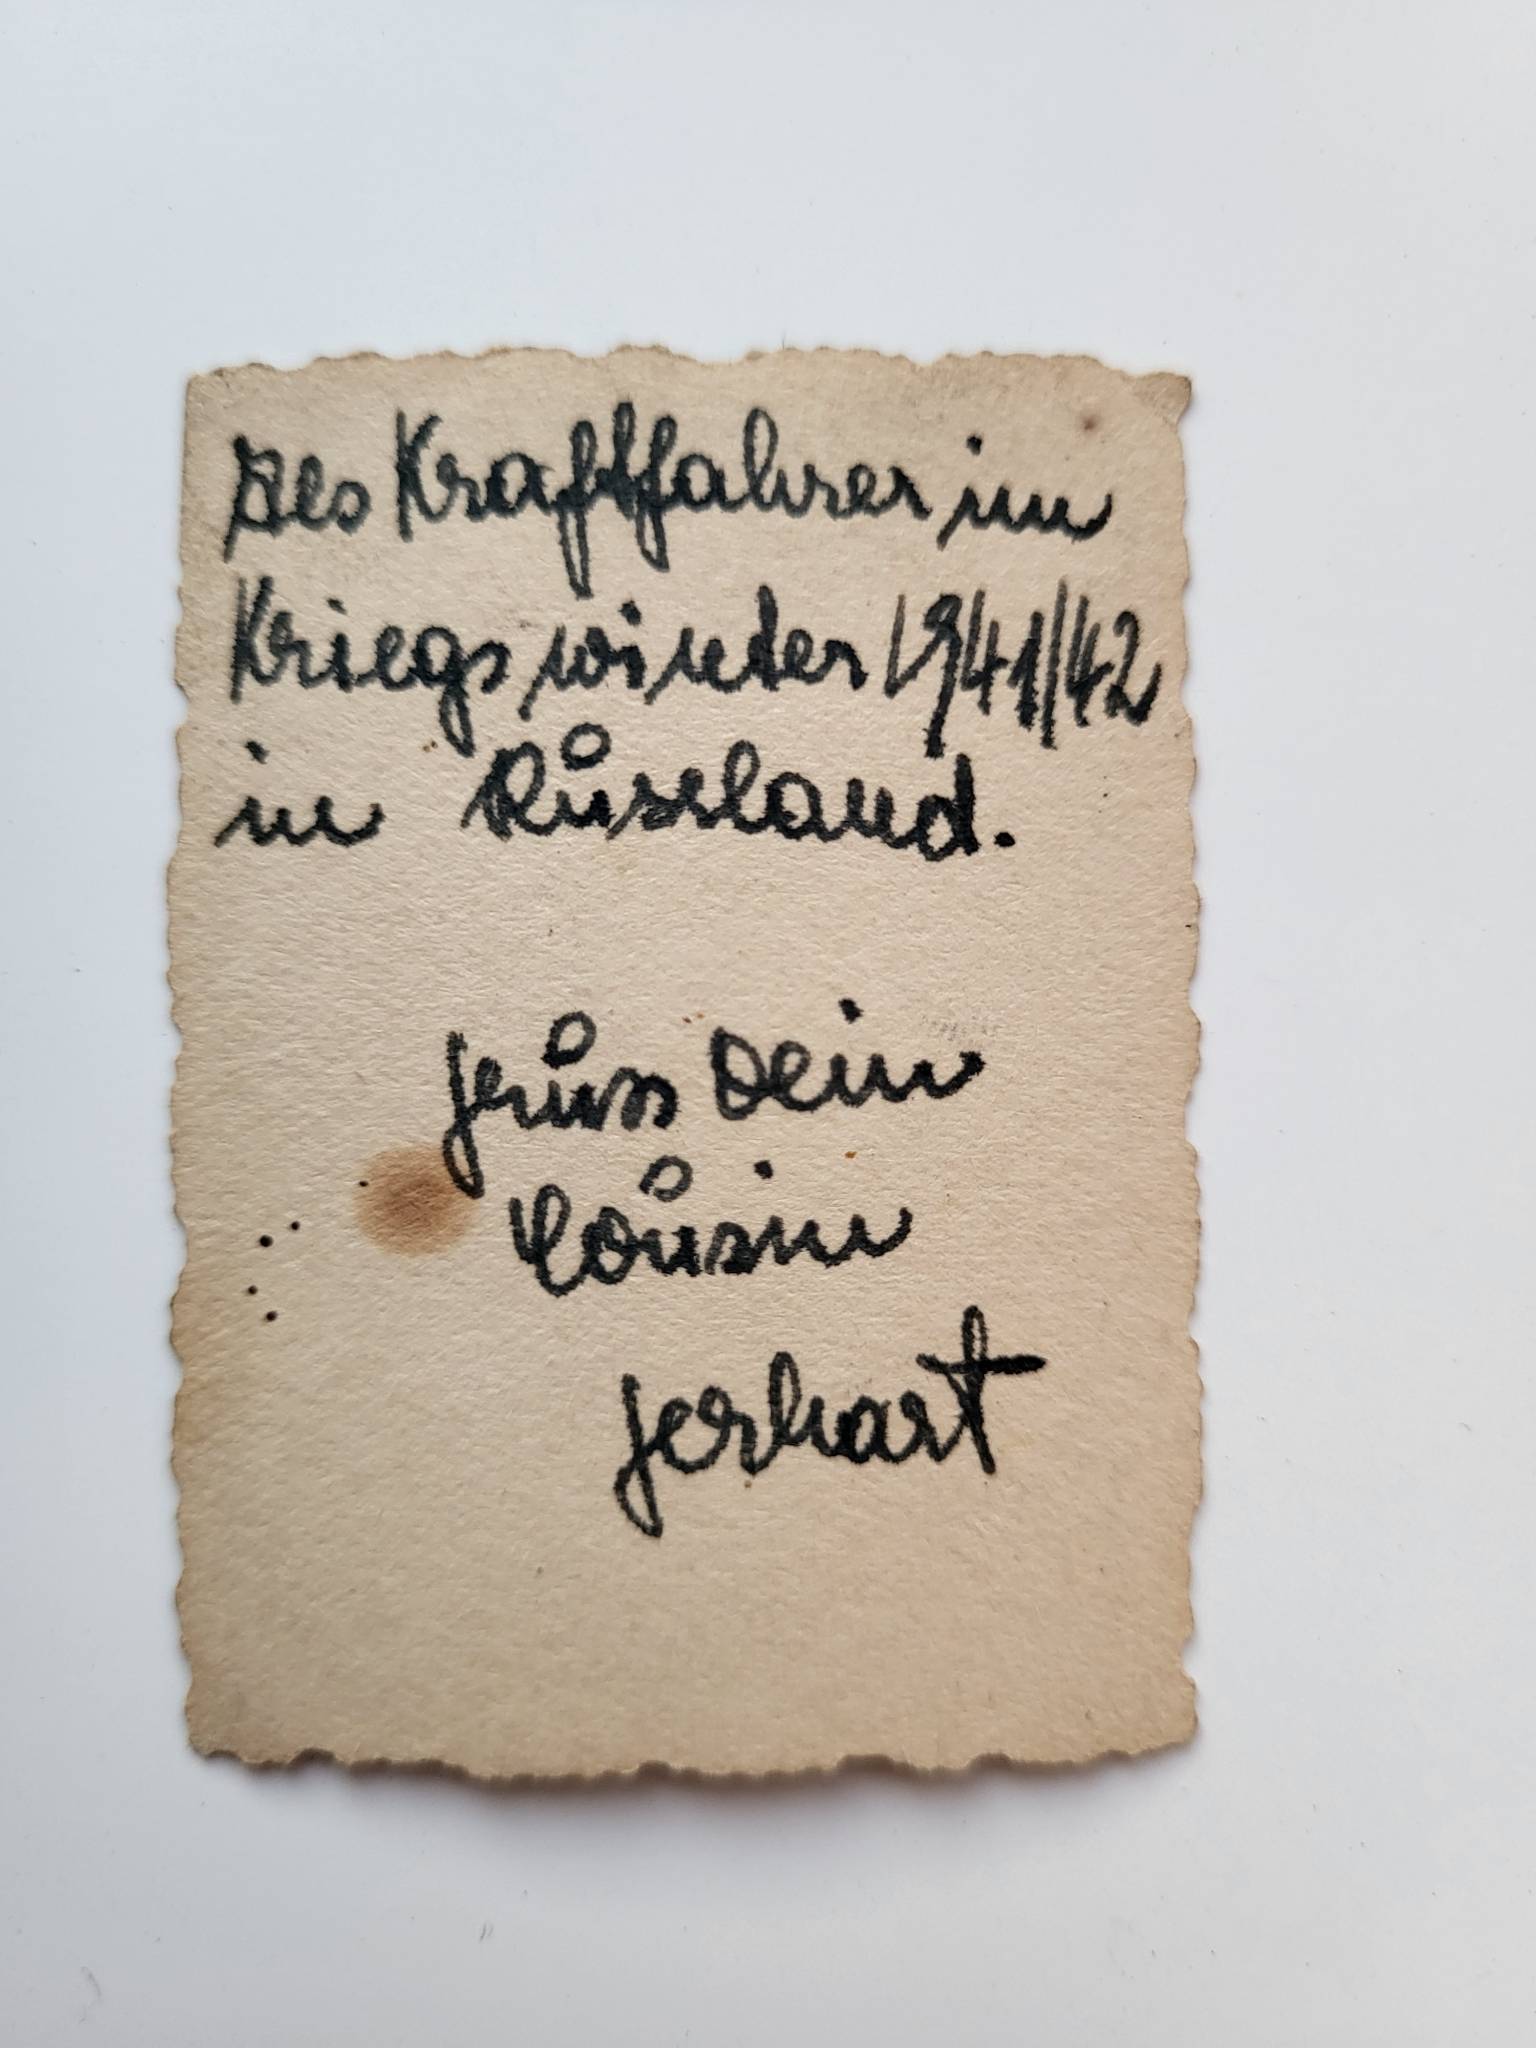 Als Kraftfahrer im
Kriegswinter 1941/42
in Russland.
Gruss Dein
Cousin
Gerhart